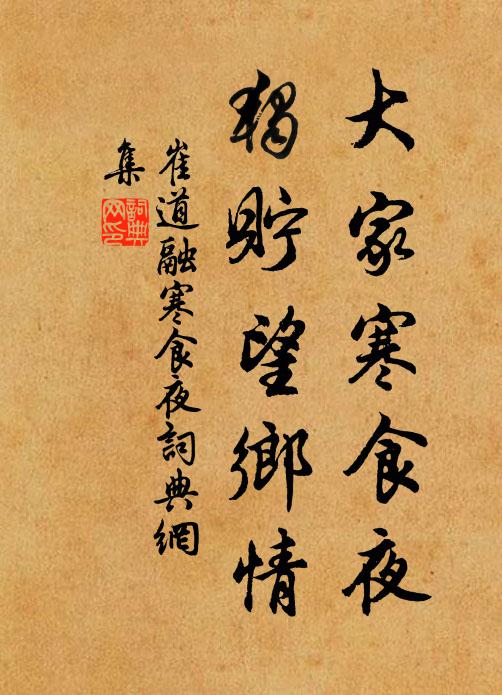 大家寒食夜
獨貯望鄉情
崔道融寒食夜詞典網
集
詞典網印